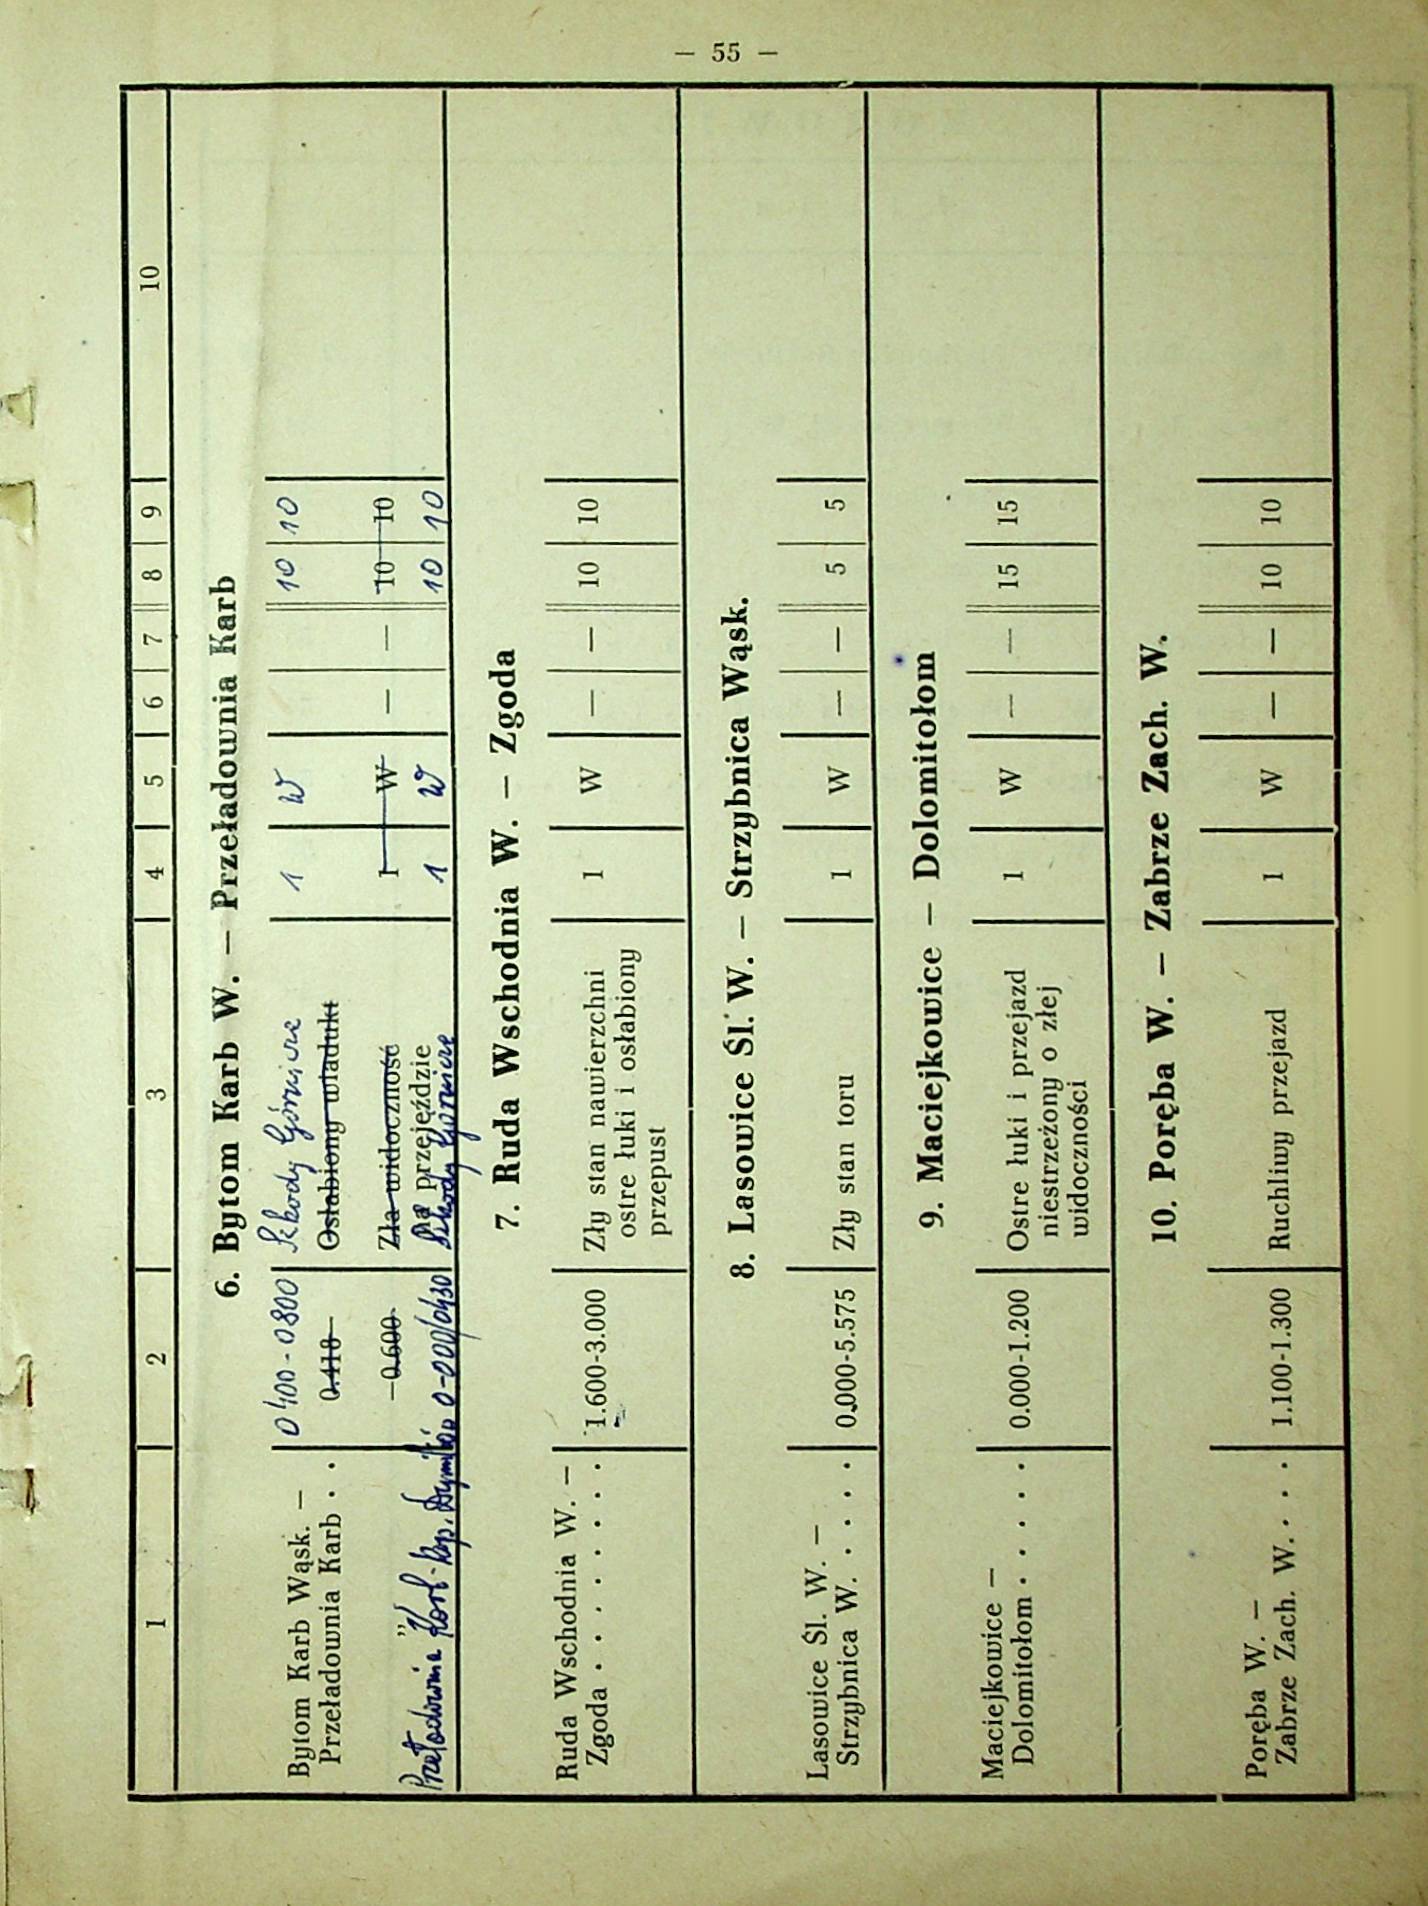 — 55 —
1 2 3 4 5 6 7 8 9 10
6. Bytom Karb W. — Przeładownia Karb
Bytom Karb Wąsk. — 0400-0800 Szkody Górnicze 1 W 10 10
Przeładownia Karb . . 0.418 Osłabiony wiadukt
„ 0.600 Zła widoczność 1 W — — 10 10
na przejeździe
Przeładownia Karb- 0-000/0430 Szkody Górnicze 1 W 10 10
7. Ruda Wschodnia W. — Zgoda
Ruda Wschodnia W. —
Zgoda . . . . . . . 1.600-3.000 Zły stan nawierzchni 1 W — — 10 10
ostre łuki i osłabiony
przepust
8. Lasowice Śl. W. — Strzybnica Wąsk.
Lasowice Śl. W. —
Strzybnica W. . . . . 0.000-5.575 Zły stan toru 1 W — — 5 5
9. Maciejkowice — Dolomitołom
Maciejkowice —
Dolomitołom . . . . . 0.000-1.200 Ostre łuki i przejazd 1 W — — 15 15
niestrzeżony o złej
widoczności
10. Poręba W. — Zabrze Zach. W.
Poręba W. —
Zabrze Zach. W. . . . 1.100-1.300 Ruchliwy przejazd 1 W — — 10 10